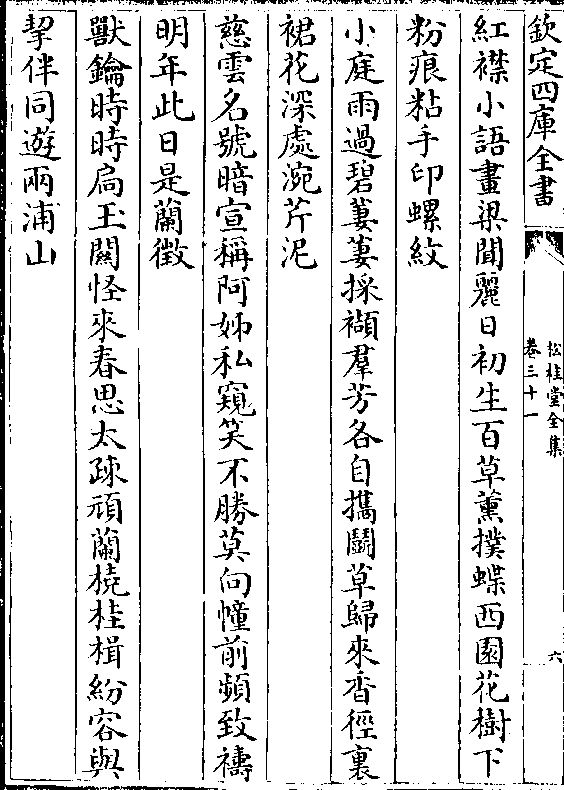 欽定四庫全書
松桂堂全集
卷三十一
六
紅襟小語畫梁聞麗日初生百草薰撲蝶西園花樹下
粉痕粘手印螺紋
小庭雨過碧萋萋採襭羣芳各自攜鬭草歸來香徑裏
裙花深處涴芹泥
慈雲名號暗宣稱阿姊私窺笑不勝莫向幢前頻致禱
明年此日是蘭徵
獸鑰時時扃玉闕怪來春思太疎頑蘭橈桂楫紛容與
挈伴同遊兩浦山